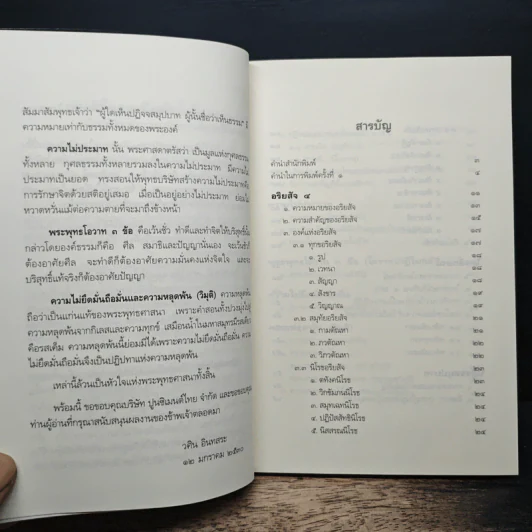 สัมมาสัมพุทธเจ้าว่า "ผู้ใดเห็นปฏิจจสมุปบาท ผู้นั้นชื่อว่าเห็นธรรม" มี
ความหมายเท่ากับธรรมทั้งหมดของพระองค์
ความไม่ประมาท นั้น พระศาสดาตรัสว่า เป็นมูลแห่งกุศลธรรม
ทั้งหลาย กุศลธรรมทั้งหลายรวมลงในความไม่ประมาท มีความไม่
ประมาทเป็นยอด ทรงสอนให้พุทธบริษัทสร้างความไม่ประมาทด้วย
การรักษาจิตด้วยสติอยู่เสมอ เมื่อเป็นอยู่อย่างไม่ประมาท ย่อมไม่
หวาดหวั่นแม้ต่อความตายที่จะมาถึงข้างหน้า
พระพุทธโอวาท ๓ ข้อ คือเว้นชั่ว ทำดีและทำจิตให้บริสุทธิ์นั้น
กล่าวโดยองค์ธรรมก็คือ ศีล สมาธิและปัญญานั่นเอง จะเว้นชั่วก็
ต้องอาศัยศีล จะทำดีก็ต้องอาศัยความมั่นคงแห่งจิตใจ และ
บริสุทธิ์แท้จริงก็ต้องอาศัยปัญญา
ความไม่ยึดมั่นถือมั่นและความหลุดพ้น (วิมุติ) ความหลุดพ้น
ถือว่าเป็นแก่นแท้ของพระพุทธศาสนา เพราะคำสอนทั้งปวงมุ่งไปสู่
ความหลุดพ้นจากกิเลสและความทุกข์ เสมือนน้ำในมหาสมุทรมีรสเดียว
คือรสเค็ม ความหลุดพ้นนี้ย่อมมีได้เพราะความไม่ยึดมั่นถือมั่น ความ
ไม่ยึดมั่นถือมั่นจึงเป็นปฏิปทาแห่งความหลุดพ้น
เหล่านี้ล้วนเป็นหัวใจแห่งพระพุทธศาสนาทั้งสิ้น
พร้อมนี้ ขอขอบคุณบริษัท ปูนซิเมนต์ไทย จำกัด และขอขอบคุณ
ท่านผู้อ่านที่กรุณาสนับสนุนผลงานของข้าพเจ้าตลอดมา
วศิน อินทสระ
๑๒ มกราคม ๒๕๓๐
สารบัญ
คำนำสำนักพิมพ์ ๓
คำนำในการพิมพ์ครั้งที่ ๑ ๔
อริยสัจ ๔ ๑๑
๑. ความหมายของอริยสัจ ๑๑
๒. ความสำคัญของอริยสัจ ๑๕
๓. องค์แห่งอริยสัจ ๑๗
๓.๑ ทุกขอริยสัจ ๑๗
๑. รูป ๑๗
๒. เวทนา ๑๗
๓. สัญญา ๑๘
๔. สังขาร ๑๙
๕. วิญญาณ ๑๙
๓.๒ สมุทัยอริยสัจ ๒๑
๑. กามตัณหา ๒๑
๒. ภวตัณหา ๒๒
๓. วิภวตัณหา ๒๒
๓.๓ นิโรธอริยสัจ ๒๓
๑. ตทังคนิโรธ ๒๔
๒. วิกขัมภนนิโรธ ๒๔
๓. สมุจเฉทนิโรธ ๒๔
๔. ปฏิปัสสัทธินิโรธ ๒๔
๕. นิสสรณนิโรธ ๒๔